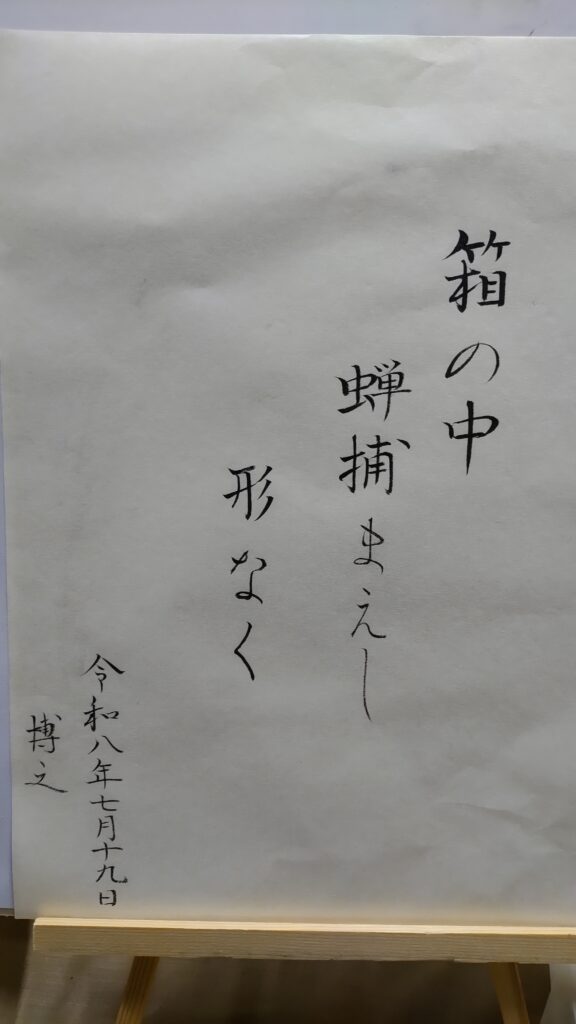 箱の中
蝉捕まえし
形なく
令和八年七月十九日
博之